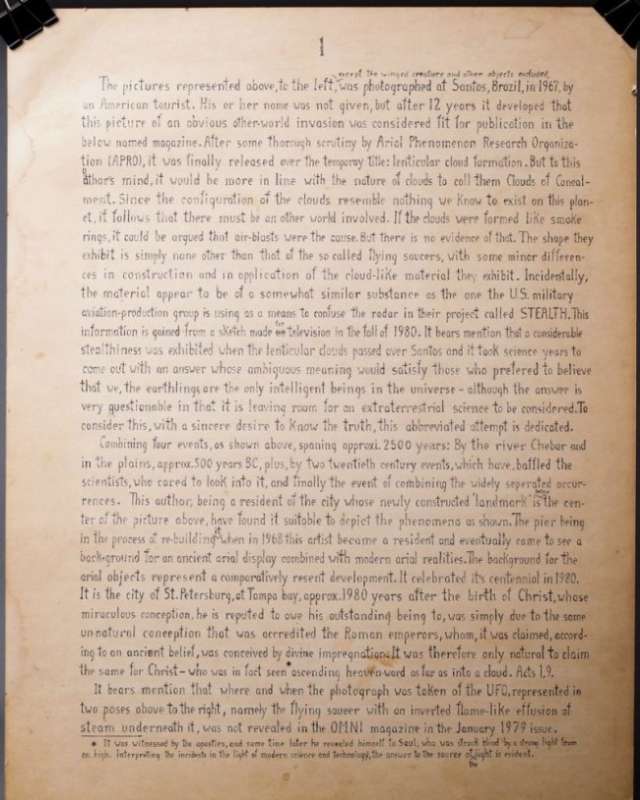 1
except the winged creature and other objects excluded,
The pictures represented above, to the left, was photographed at Santos, Brazil, in 1967, by
an American tourist. His or her name was not given, but after 12 years it developed that
this picture of an obvious other-world invasion was considered fit for publication in the
below named magazine. After some thorough scrutiny by Ariel Phenomenon Research Organiza-
tion (APRO), it was finally released over the temporary title: lenticular cloud formation. But to this
athor's mind, it would be more in line with the nature of clouds to call them Clouds of Conceal-
ment. Since the configuration of the clouds resemble nothing we know to exist on this plan-
et, it follows that there must be an other world involved. If the clouds were formed like smoke
rings, it could be argued that air-blasts were the cause. But there is no evidence of that. The shape they
exhibit is simply none other than that of the so called flying saucers, with some minor differen-
ces in construction and in application of the cloud-like material they exhibit. Incidentally,
the material appear to be of a somewhat similar substance as the one the U.S. military
aviation-production group is using as a means to confuse the radar in their project called STEALTH. This
information is gained from a sketch made for television in the fall of 1980. It bears mention that a considerable
stealthiness was exhibited when the lenticular clouds passed over Santos and it took science years to
come out with an answer whose ambiguous meaning would satisfy those who prefered to believe
that we, the earthlings are the only intelligent beings in the universe - although the answer is
very questionable in that it is leaving room for an extraterrestrial science to be considered. To
consider this, with a sincere desire to know the truth, this abbreviated attempt is dedicated.
Combining four events, as shown above, spaning approxi. 2500 years: By the river Chebar and
in the plains, approx. 500 years BC, plus, by two twentieth century events, which have, baffled the
scientists, who cared to look into it, and finally the event of combining the widely seperated occur-
rences. This author, being a resident of the city whose newly constructed 'landmark' is the cen-
ter of the picture above, have found it suitable to depict the phenomena as shown. The pier being
in the process of re-building when in 1968 this artist became a resident and eventually came to see a
back-ground for an ancient arial display combined with modern arial realities. The background for the
arial objects represent a comparatively resent development. It celebrated its centennial in 1980.
It is the city of St. Petersburg, at Tampa bay, approx. 1980 years after the birth of Christ, whose
miraculous conception, he is reputed to owe his outstanding being to, was simply due to the same
un-natural conception that was accredited the Roman emperors, whom, it was claimed, accord-
ing to an ancient belief, was conceived by divine impregnation. It was therefore only natural to claim
the same for Christ - who was in fact seen * ascending heaven-ward as far as into a cloud. Acts 1,9.
It bears mention that where and when the photograph was taken of the UFO, represented in
two poses above to the right, namely the flying saucer with an inverted flame-like effusion of
steam underneath it, was not revealed in the OMNI magazine in the January 1979 issue.
* It was witnessed by the apostles, and some time later he revealed himself to Saul, who was struck blind by a strong light from
on high. Interpreting the incidents in the light of modern science and technology, the answer to the source of light is evident.
the